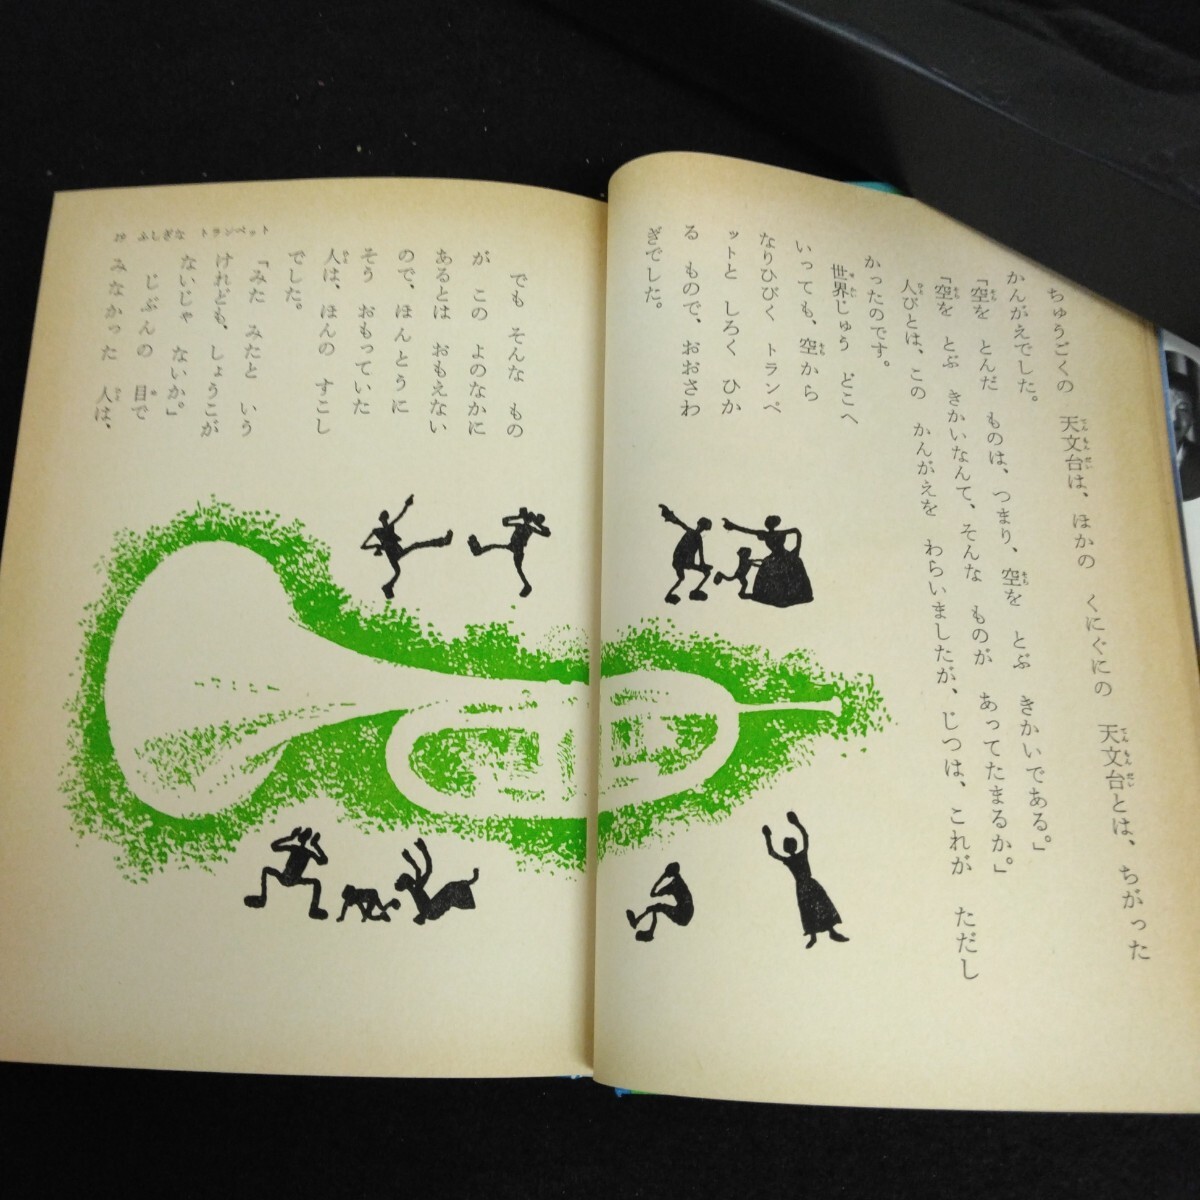 ちゅうごくの　天文台は、ほかの　くにぐにの　天文台とは、ちがった
かんがえでした。
「空を　とんだ　ものは、つまり、空を　とぶ　きかいである。」
「空を　とぶ　きかいなんて、そんな　ものが　あってたまるか。」
人びとは、この　かんがえを　わらいましたが、じつは、これが　ただし
かったのです。
世界じゅう　どこへ
いっても、空から
なりひびく　トランペ
ットと　しろく　ひか
る　もので、おおさわ
ぎでした。
でも　そんな　もの
が　この　よのなかに
あるとは　おもえない
ので、ほんとうに
そう　おもっていた
人は、ほんの　すこし
でした。
「みた　みたと　いう
けれども、しょうこが
ないじゃ　ないか。」
じぶんの　目で
みなかった　人は、
ふしぎな　トランペット